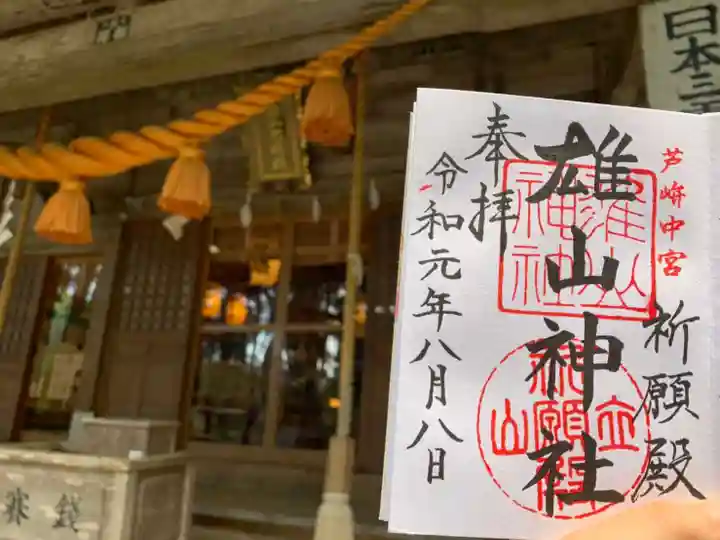 日本三
芦峅中宮
祈願殿
雄山神社
雄山神社
立山
祈願殿
奉拝
令和元年八月八日
賽銭